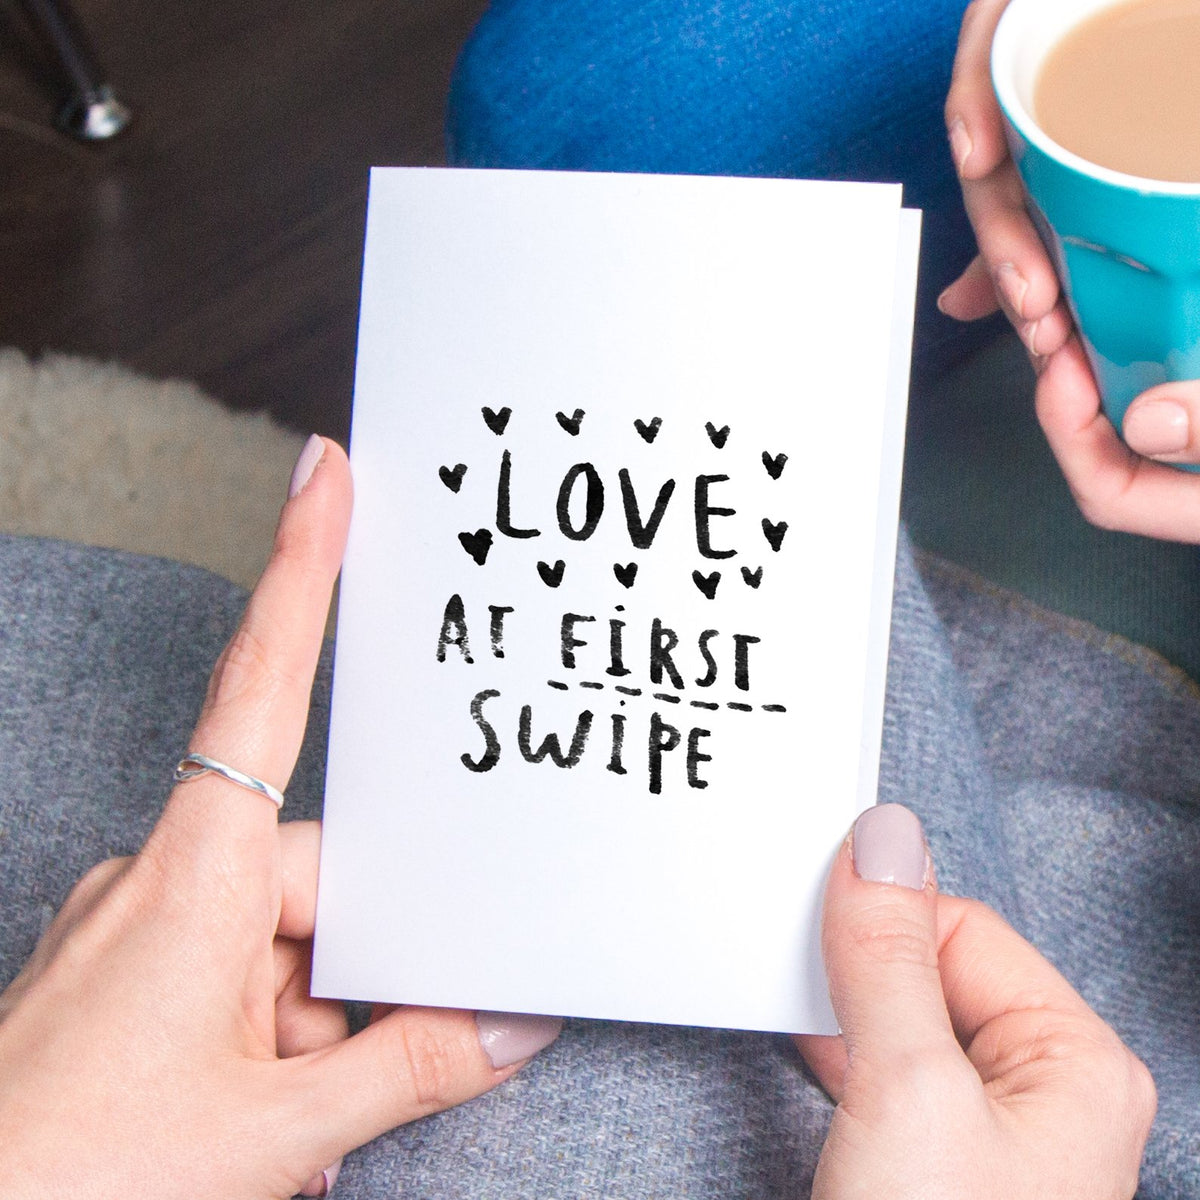 LOVE
AT FIRST
SWIPE